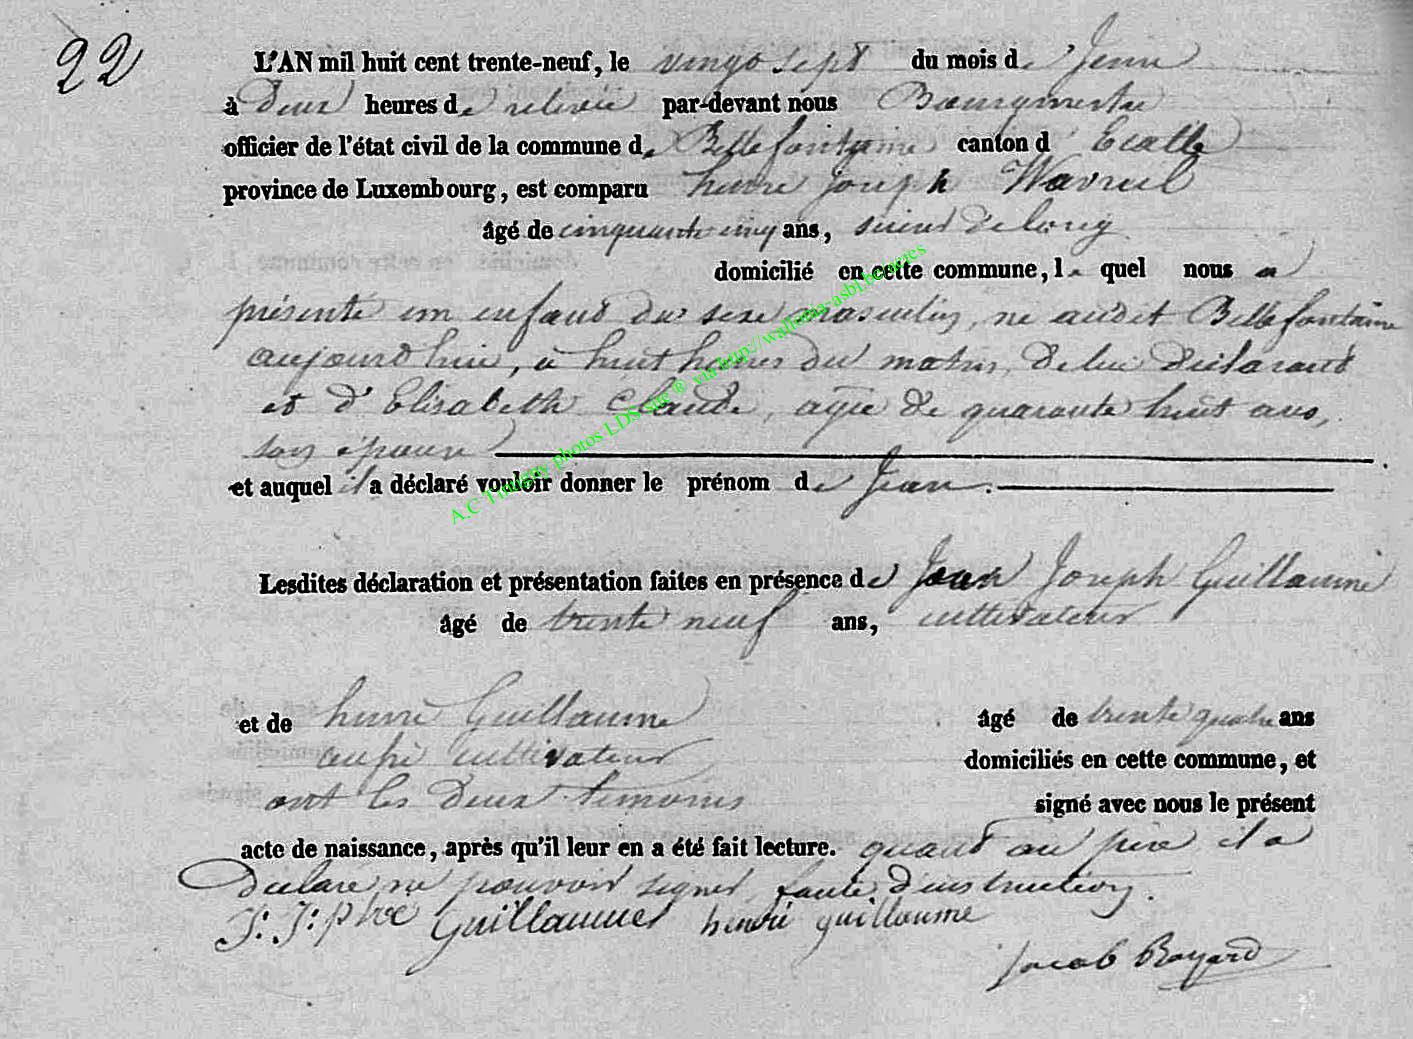 22
L'AN mil huit cent trente-neuf, le vingt sept du mois de Juin
à Deux heures de relevée par-devant nous Bourgmestre
officier de l'état civil de la commune de Bellefontaine canton d' Etalle
province de Luxembourg, est comparu henri joseph Wavreil
âgé de cinquante cinq ans, scieur de long
domicilié en cette commune, le quel nous a
présenté un enfant du sexe masculin, né audit Bellefontaine
aujourd'hui, à huit heures du matin, de lui déclarant
et d'Elisabeth Claude, agée de quarante huit ans,
son épouse
et auquel il a déclaré vouloir donner le prénom de Jean.
Lesdites déclaration et présentation faites en présence de Jean Joseph Guillaume
âgé de trente neuf ans, cultivateur
et de henri Guillaume âgé de trente quatre ans
aussi cultivateur domiciliés en cette commune, et
ont les deux témoins signé avec nous le présent
acte de naissance, après qu'il leur en a été fait lecture. quant au père il a
déclaré ne pouvoir signer, faute d'instruction.
J: J:phe Guillaume henri guillaume
Jacob Bayard
A.C Tintigny photos LDS site ® via http://wallonia-asbl.be/actes